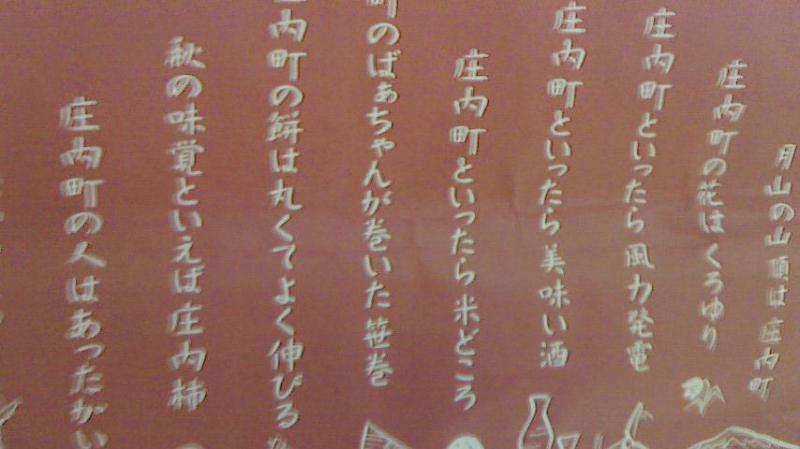 月山の山頂は庄内町
庄内町の花はくろゆり
庄内町といったら風力発電
庄内町といったら美味い酒
庄内町といったら米どころ
町のばぁちゃんが巻いた笹巻
庄内町の餅は丸くてよく伸びる
秋の味覚といえば庄内柿
庄内町の人はあったかい